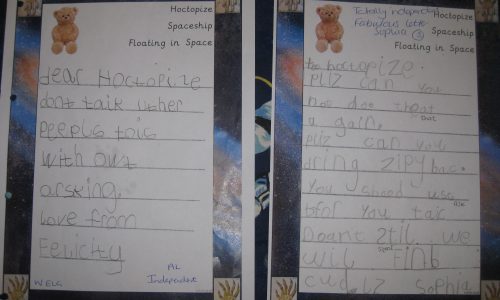 Hoctopize
Spaceship
Floating in Space
dear Hoctopize
dont talk uther
peepuls tois
with out
arsking.
Love from
Felicity
WELG
AL
Independent
Totally independent
Fabulous letter
Sophia
Hoctopize
Spaceship
Floating in Space
to hoctopize.
pliz can you
not doo that
a gain.
pliz can you
bring zipy bac.
You shood
ask
bfor you tac
Doant stil we
steal
wil find
Sophia